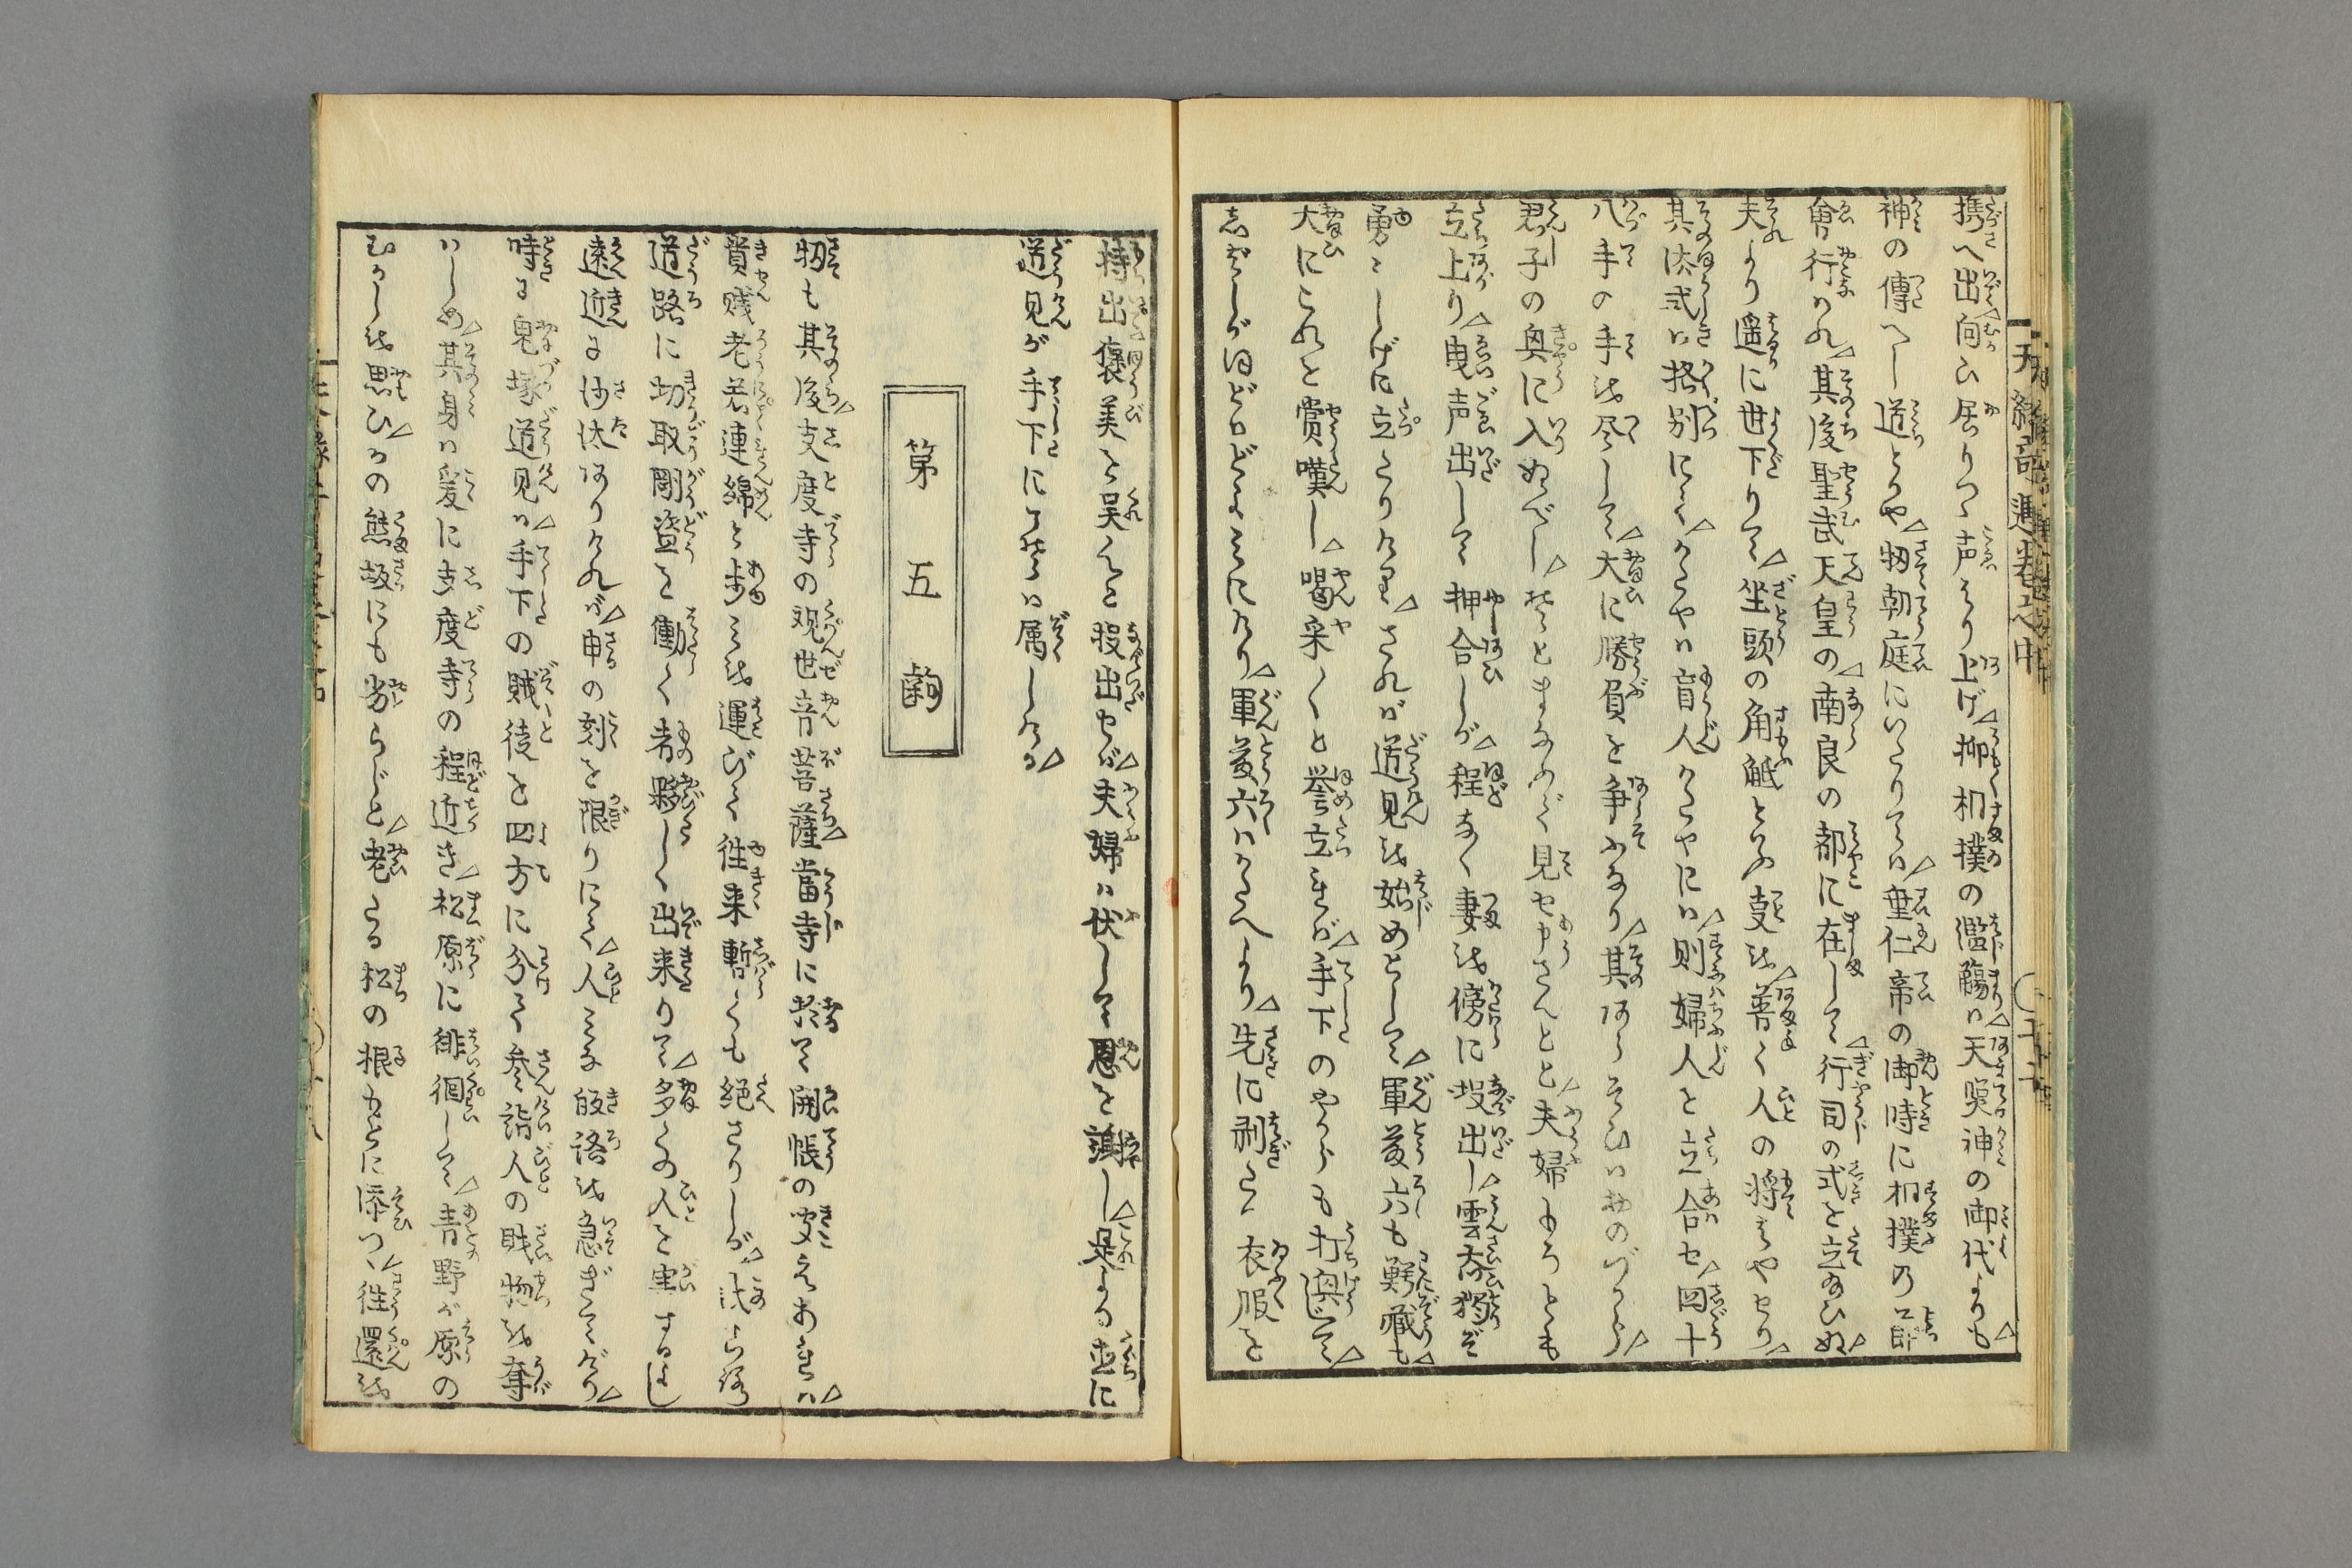 携へ出向ひ居りつゝ声はり上げ△抑相撲の濫觴は△天照神の御代よりも△
神の傳へし道とかや△扨朝庭にいたりては△垂仁帝の御時に相撲の節
會行かれ△其後聖武天皇の△南良の都に在して△行司の式を立玉ひぬ△
夫より遥に世下りて△坐頭の角觝といふ事を△普く人の将はやせり△
其法式は格別にて△かたやは盲人かたやには△則婦人を立合セ△四十
八手の手を尽して△大に勝負を争ふなり△其あらそひはおのづから△
君子の奥に入ぬべし△いでとまなめで見セ申さんと△夫婦もろとも
立上り△曳声出して押合しが△程なく妻を傍に投出し△雲呑獨ぞ
勇ましげに立たりける△されば道見を始めとして△軍藤六も鰐藏も△
大にこれを賞嘆し△喝采〳〵と誉立れば△手下のやからも打興じて△
志ざしがほどほどよミになり△軍藤六はかたへより△先に剥たる衣服を
持出褒美と呉んと投出セば△夫婦は伏して恩を謝し△是よる直に
道見が手下にこそは属しける△
第五齣
扨も其後△支度寺の観世音菩薩△當寺に於て開帳の聞えありけれは△
貴賤老若連綿と歩ミを運びて往来暫くも絶さりしが△此ころ
道路に切取剛盗を働く者夥しく出来りて△多くの人を害するよし
遠近に沙汰ありけれバ△申の刻を限りにて△人ミな皈路を急ぎてげり△
時に鬼塚道見は△手下の賊徒を四方に分て参詣人の財物を奪
はしめ△其身は爰に支度寺の程近き△松原に徘徊して△青野が原の
むかしを思ひ△かの熊坂にも劣らじと△老たる松の根もとに添つゝ△往還を